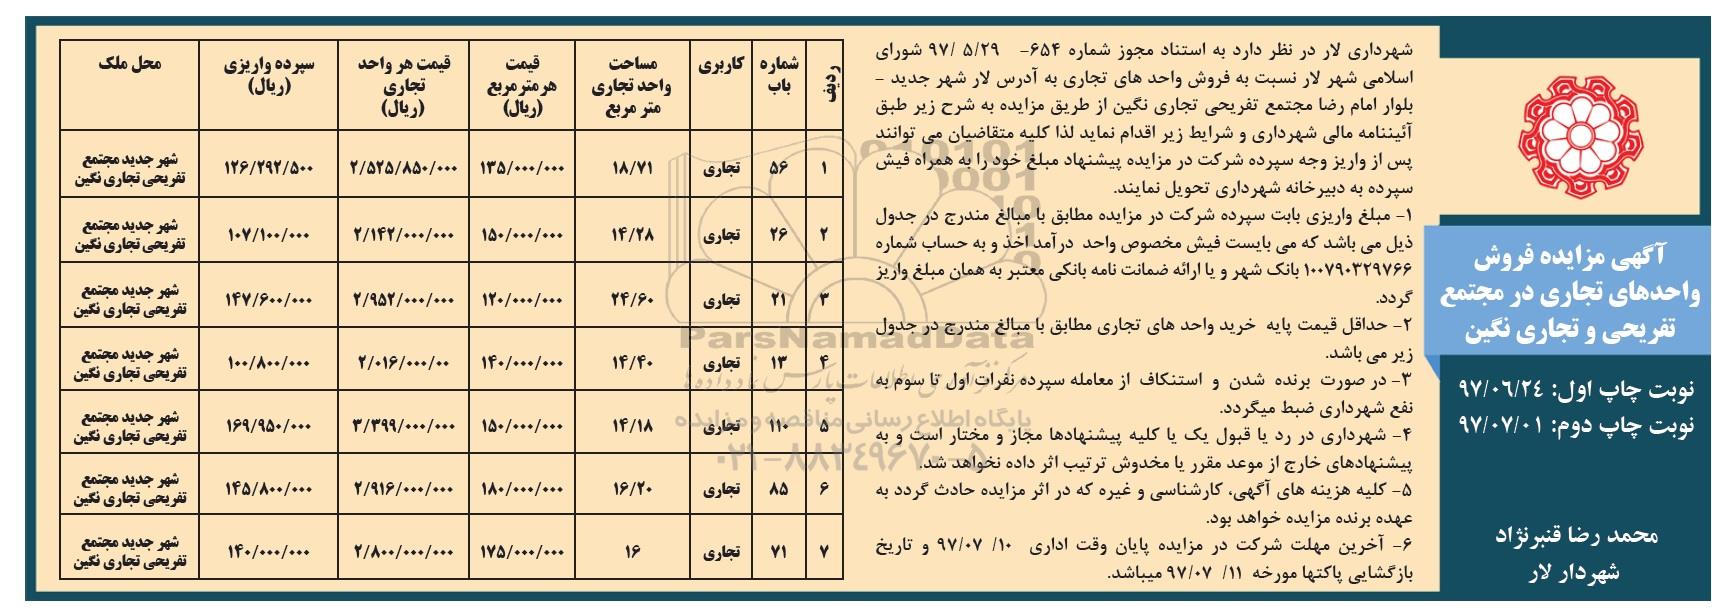 آگهی مزایده فروش
واحدهای تجاری در مجتمع
تفریحی و تجاری نگین
نوبت چاپ اول: ۹۷/۰۶/۲۴
نوبت چاپ دوم: ۹۷/۰۷/۰۱
محمد رضا قنبرنژاد
شهردار لار
شهرداری لار در نظر دارد به استناد مجوز شماره ۶۵۴- ۹۷/ ۵/۲۹ شورای
اسلامی شهر لار نسبت به فروش واحد های تجاری به آدرس لار شهر جدید -
بلوار امام رضا مجتمع تفریحی تجاری نگین از طریق مزایده به شرح زیر طبق
آئیننامه مالی شهرداری و شرایط زیر اقدام نماید لذا کلیه متقاضیان می توانند
پس از واریز وجه سپرده شرکت در مزایده پیشنهاد مبلغ خود را به همراه فیش
سپرده به دبیرخانه شهرداری تحویل نمایند.
۱- مبلغ واریزی بابت سپرده شرکت در مزایده مطابق با مبالغ مندرج در جدول
ذیل می باشد که می بایست فیش مخصوص واحد درآمد اخذ و به حساب شماره
۱۰۰۷۹۰۳۲۹۷۶۶ بانک شهر و یا ارائه ضمانت نامه بانکی معتبر به همان مبلغ واریز
گردد.
۲- حداقل قیمت پایه خرید واحد های تجاری مطابق با مبالغ مندرج در جدول
زیر می باشد.
۳- در صورت برنده شدن و استنکاف از معامله سپرده نفرات اول تا سوم به
نفع شهرداری ضبط میگردد.
۴- شهرداری در رد یا قبول یک یا کلیه پیشنهادها مجاز و مختار است و به
پیشنهادهای خارج از موعد مقرر یا مخدوش ترتیب اثر داده نخواهد شد.
۵- کلیه هزینه های آگهی، کارشناسی و غیره که در اثر مزایده حادث گردد به
عهده برنده مزایده خواهد بود.
۶- آخرین مهلت شرکت در مزایده پایان وقت اداری ۱۰/ ۹۷/۰۷ و تاریخ
بازگشایی پاکتها مورخه ۱۱/ ۹۷/۰۷ میباشد.
ردیف شماره باب کاربری مساحت واحد تجاری متر مربع قیمت هرمترمربع (ریال) قیمت هر واحد تجاری (ریال) سپرده واریزی (ریال) محل ملک
۱ ۵۶ تجاری ۱۸/۷۱ ۱۳۵/۰۰۰/۰۰۰ ۲/۵۲۵/۸۵۰/۰۰۰ ۱۲۶/۲۹۲/۵۰۰ شهر جدید مجتمع تفریحی تجاری نگین
۲ ۲۶ تجاری ۱۴/۲۸ ۱۵۰/۰۰۰/۰۰۰ ۲/۱۴۲/۰۰۰/۰۰۰ ۱۰۷/۱۰۰/۰۰۰ شهر جدید مجتمع تفریحی تجاری نگین
۳ ۲۱ تجاری ۲۴/۶۰ ۱۲۰/۰۰۰/۰۰۰ ۲/۹۵۲/۰۰۰/۰۰۰ ۱۴۷/۶۰۰/۰۰۰ شهر جدید مجتمع تفریحی تجاری نگین
۴ ۱۳ تجاری ۱۴/۴۰ ۱۴۰/۰۰۰/۰۰۰ ۲/۰۱۶/۰۰۰/۰۰ ۱۰۰/۸۰۰/۰۰۰ شهر جدید مجتمع تفریحی تجاری نگین
۵ ۱۱۰ تجاری ۱۴/۱۸ ۱۵۰/۰۰۰/۰۰۰ ۳/۳۹۹/۰۰۰/۰۰۰ ۱۶۹/۹۵۰/۰۰۰ شهر جدید مجتمع تفریحی تجاری نگین
۶ ۸۵ تجاری ۱۶/۲۰ ۱۸۰/۰۰۰/۰۰۰ ۲/۹۱۶/۰۰۰/۰۰۰ ۱۴۵/۸۰۰/۰۰۰ شهر جدید مجتمع تفریحی تجاری نگین
۷ ۷۱ تجاری ۱۶ ۱۷۵/۰۰۰/۰۰۰ ۲/۸۰۰/۰۰۰/۰۰۰ ۱۴۰/۰۰۰/۰۰۰ شهر جدید مجتمع تفریحی تجاری نگین
ParsNamadData
پایگاه اطلاع رسانی مناقصه و مزایده
۰۲۱-۸۸۳۴۹۶۷۰-۵